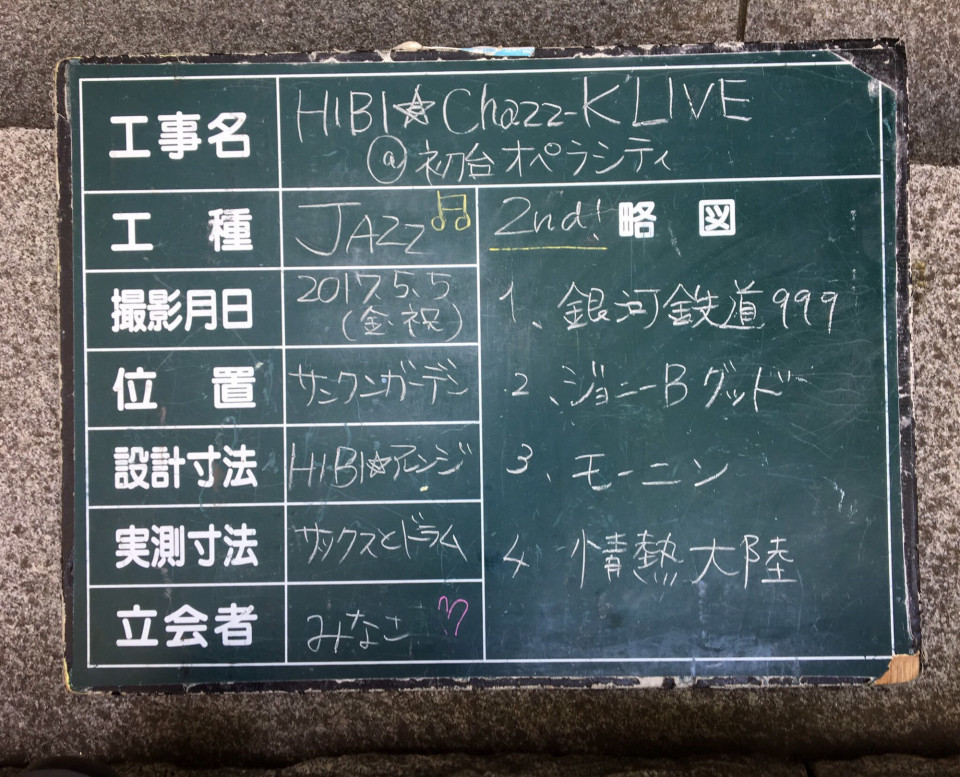 工事名 HIBI☆Chazz-K LIVE
@初台オペラシティ
工種 JAZZ♫
撮影月日 2017.5.5
(金・祝)
位置 サンクンガーデン
設計寸法 HIBI☆アレンジ
実測寸法 サックスとドラム
立会者 みなこ♡
2nd! 略図
1、銀河鉄道999
2、ジョニーBグッド
3、モーニン
4 情熱大陸